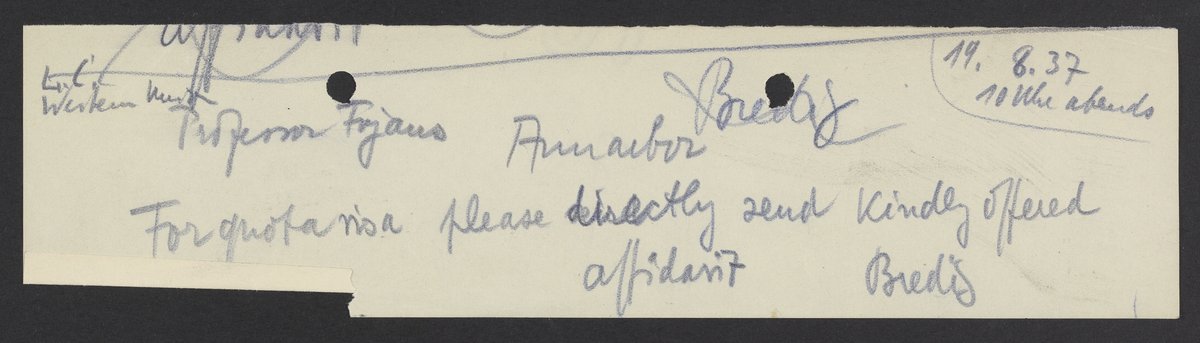 affidavit
19. 8. 37
10 Uhr abends
Western
Bredig
Professor Fajans Annarbor
For quota visa please directly send kindly offered
affidavit Bredig